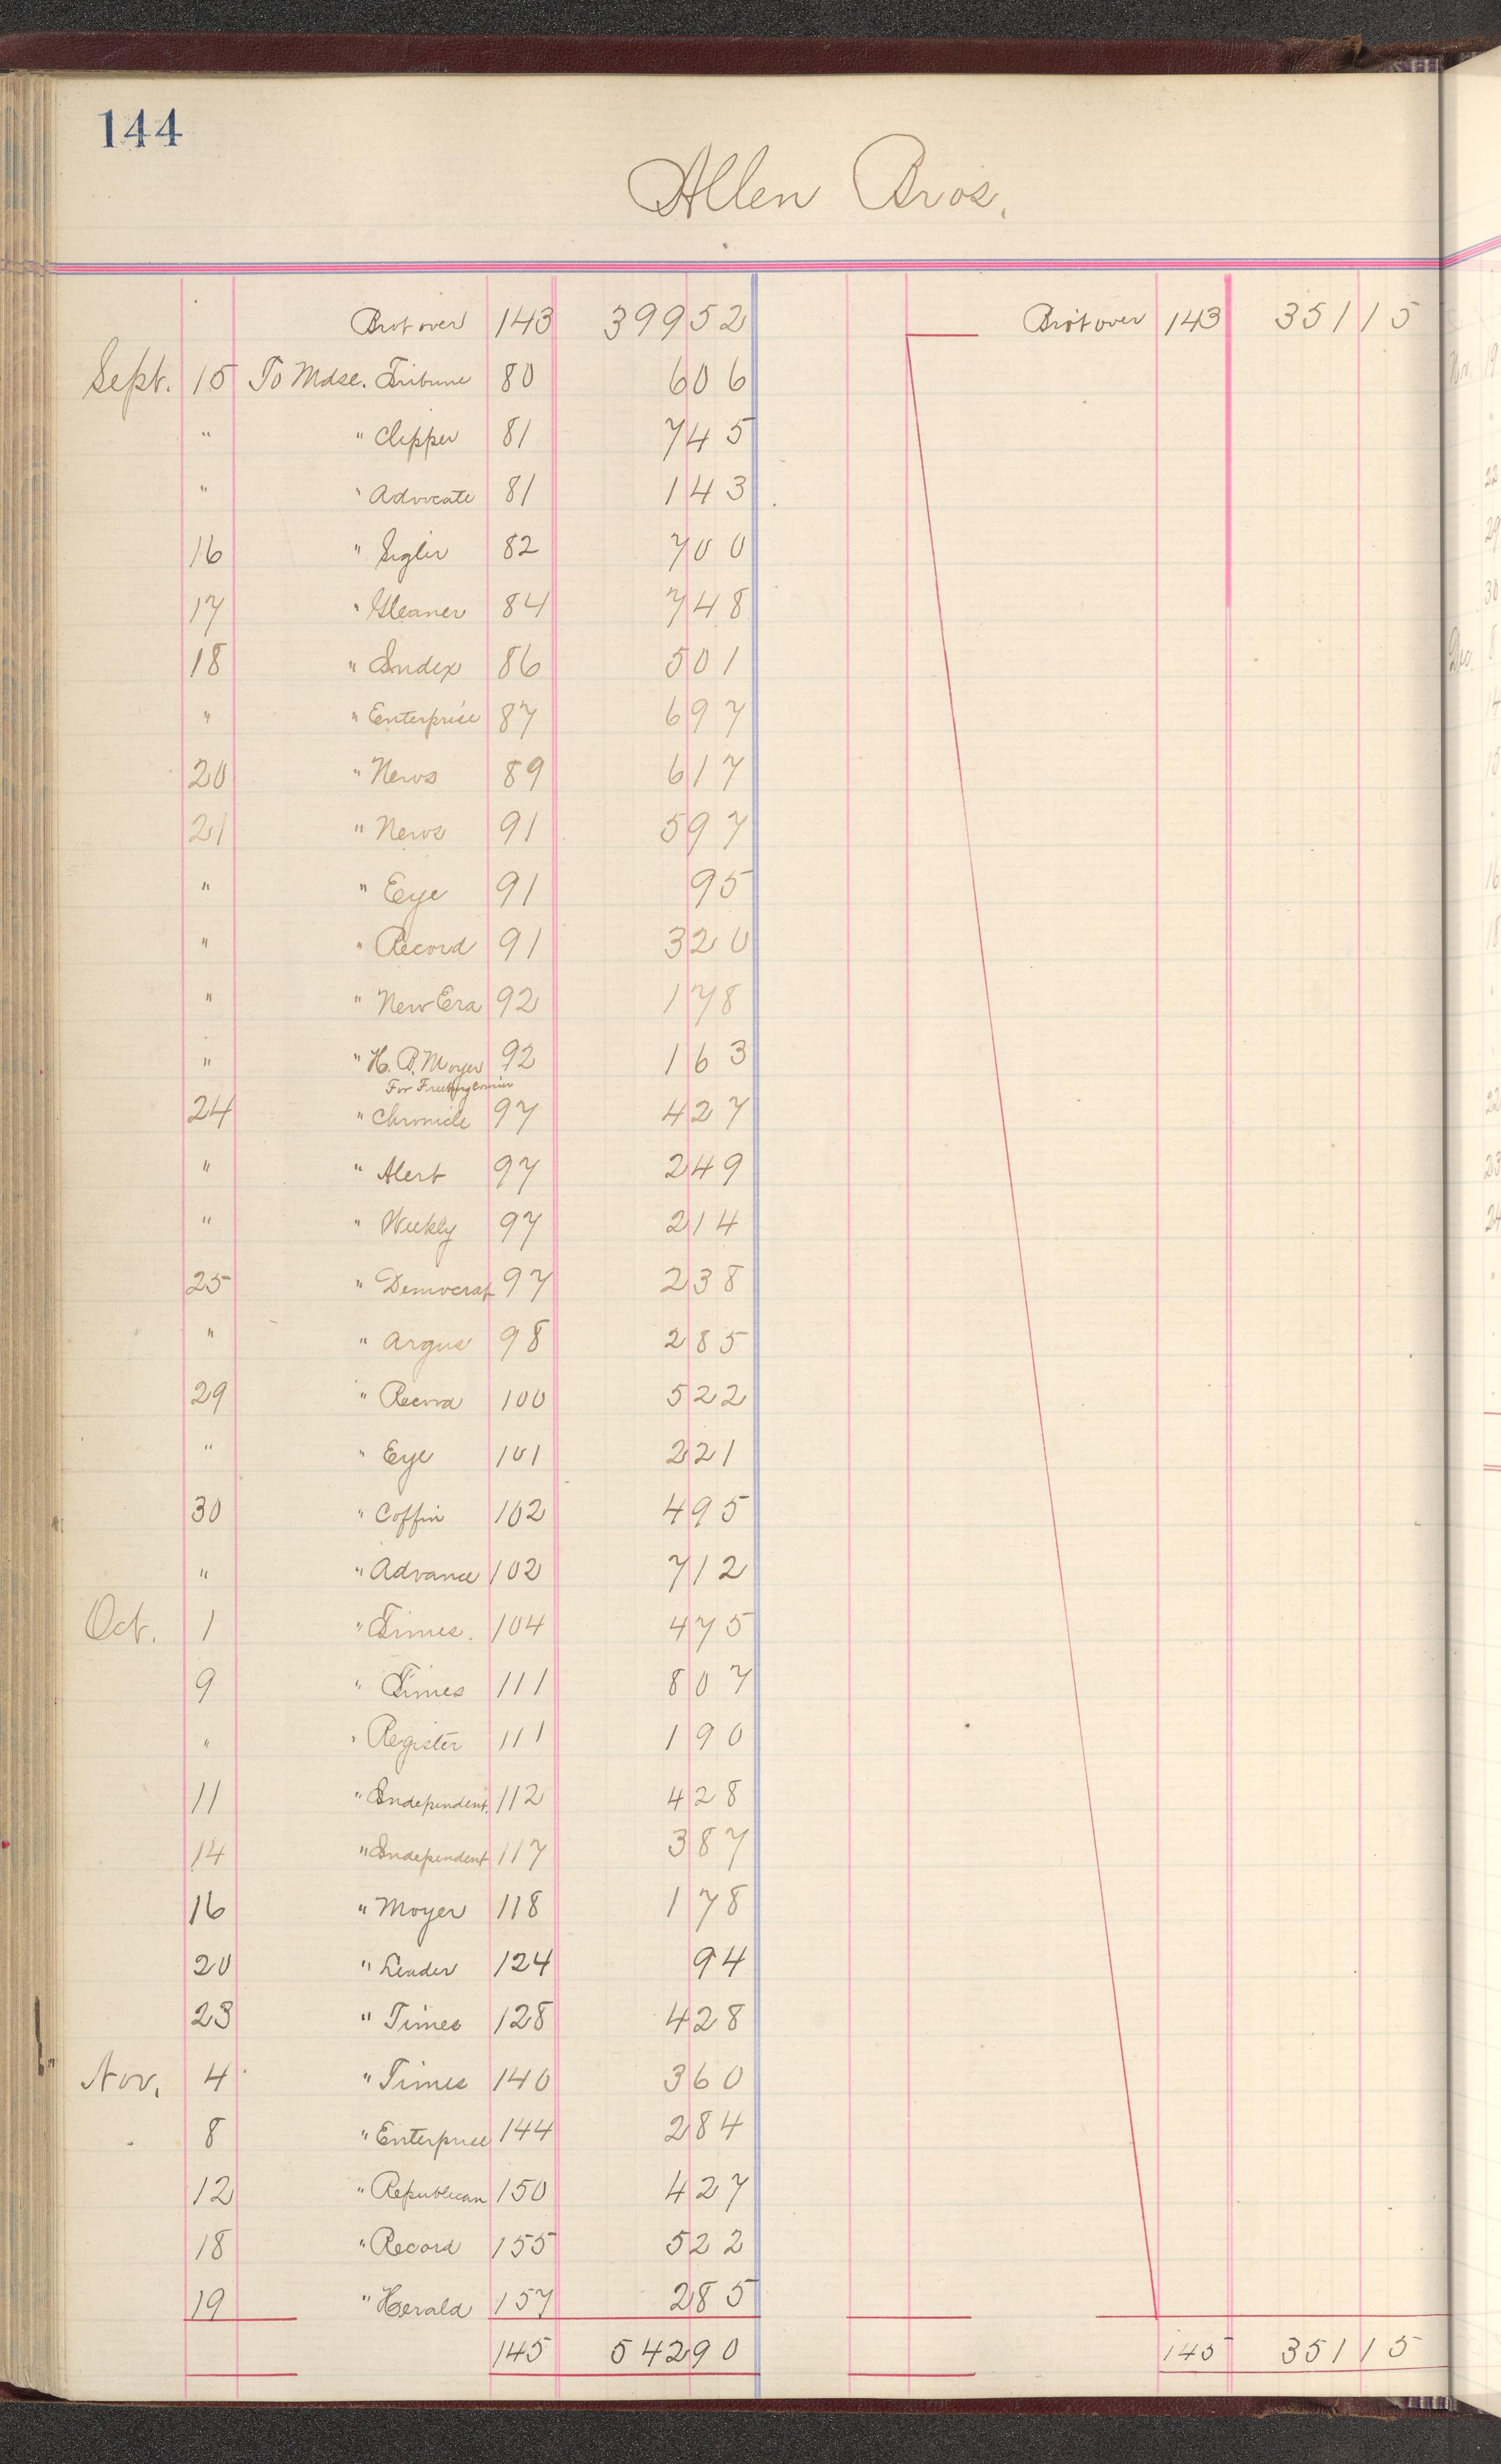 144
Allen Bros.
Brot over 143 399 52 Brot over 143 351 15
Sept. 15 To Mdse. Tribune 80 6 06
" " Clipper 81 7 45
" " Advocate 81 1 43
16 " Sigler 82 7 00
17 " Gleaner 84 7 48
18 " Index 86 5 01
" " Enterprise 87 6 97
20 " News 89 6 17
21 " News 91 5 97
" " Eye 91 95
" " Record 91 3 20
" " New Era 92 1 78
" " H. P. Moyer 92 1 63
For
24 " Chronicle 97 4 27
" " Alert 97 2 49
" " Weekly 97 2 14
25 " Democrat 97 2 38
" " Argus 98 2 85
29 " Record 100 5 22
" " Eye 101 2 21
30 " Coffin 102 4 95
" " Advance 102 7 12
Oct. 1 " Times. 104 4 75
9 " Times 111 8 07
" " Register 111 1 90
11 " Independent. 112 4 28
14 " Independent 117 3 87
16 " Moyer 118 1 78
20 " Leader 124 94
23 " Times 128 4 28
Nov. 4 " Times 140 3 60
8 " Enterprise 144 2 84
12 " Republican 150 4 27
18 " Record 155 5 22
19 " Herald 157 2 85
145 542 90 145 351 15
Nov. 19
22
29
30
Dec. 8
14
15
16
18
22
23
24